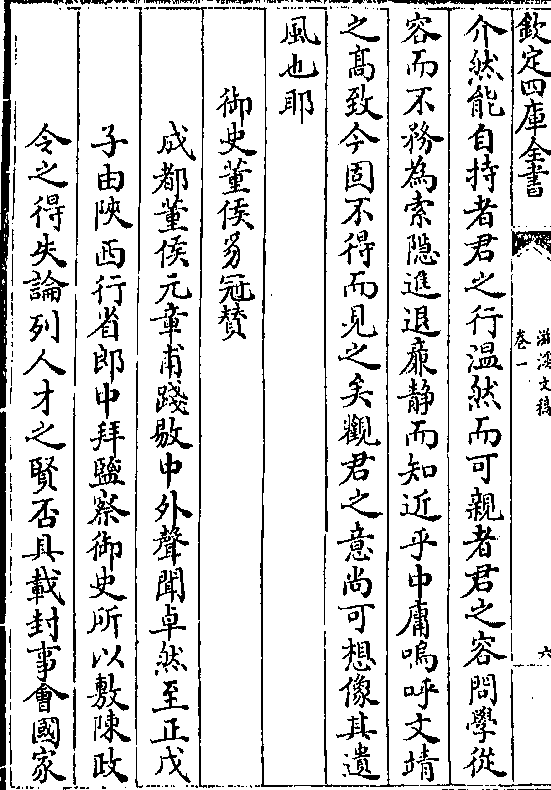 欽定四庫全書
滋溪文稿
卷一
六
介然能自持者君之行温然而可親者君之容問學從
容而不務為索隠進退㢘静而知近乎中庸嗚呼文靖
之髙致今固不得而見之矣觀君之意尚可想像其遺
風也耶
御史董侯豸冠賛
成都董侯元章甫踐敭中外聲聞卓然至正戊
子由陜西行省郎中拜監察御史所以敷陳政
令之得失論列人才之賢否具載封事會國家